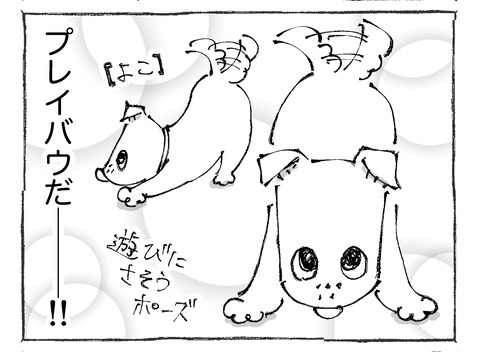 プレイバウだ――!!
【よこ】
遊びに
さそう
ポーズ